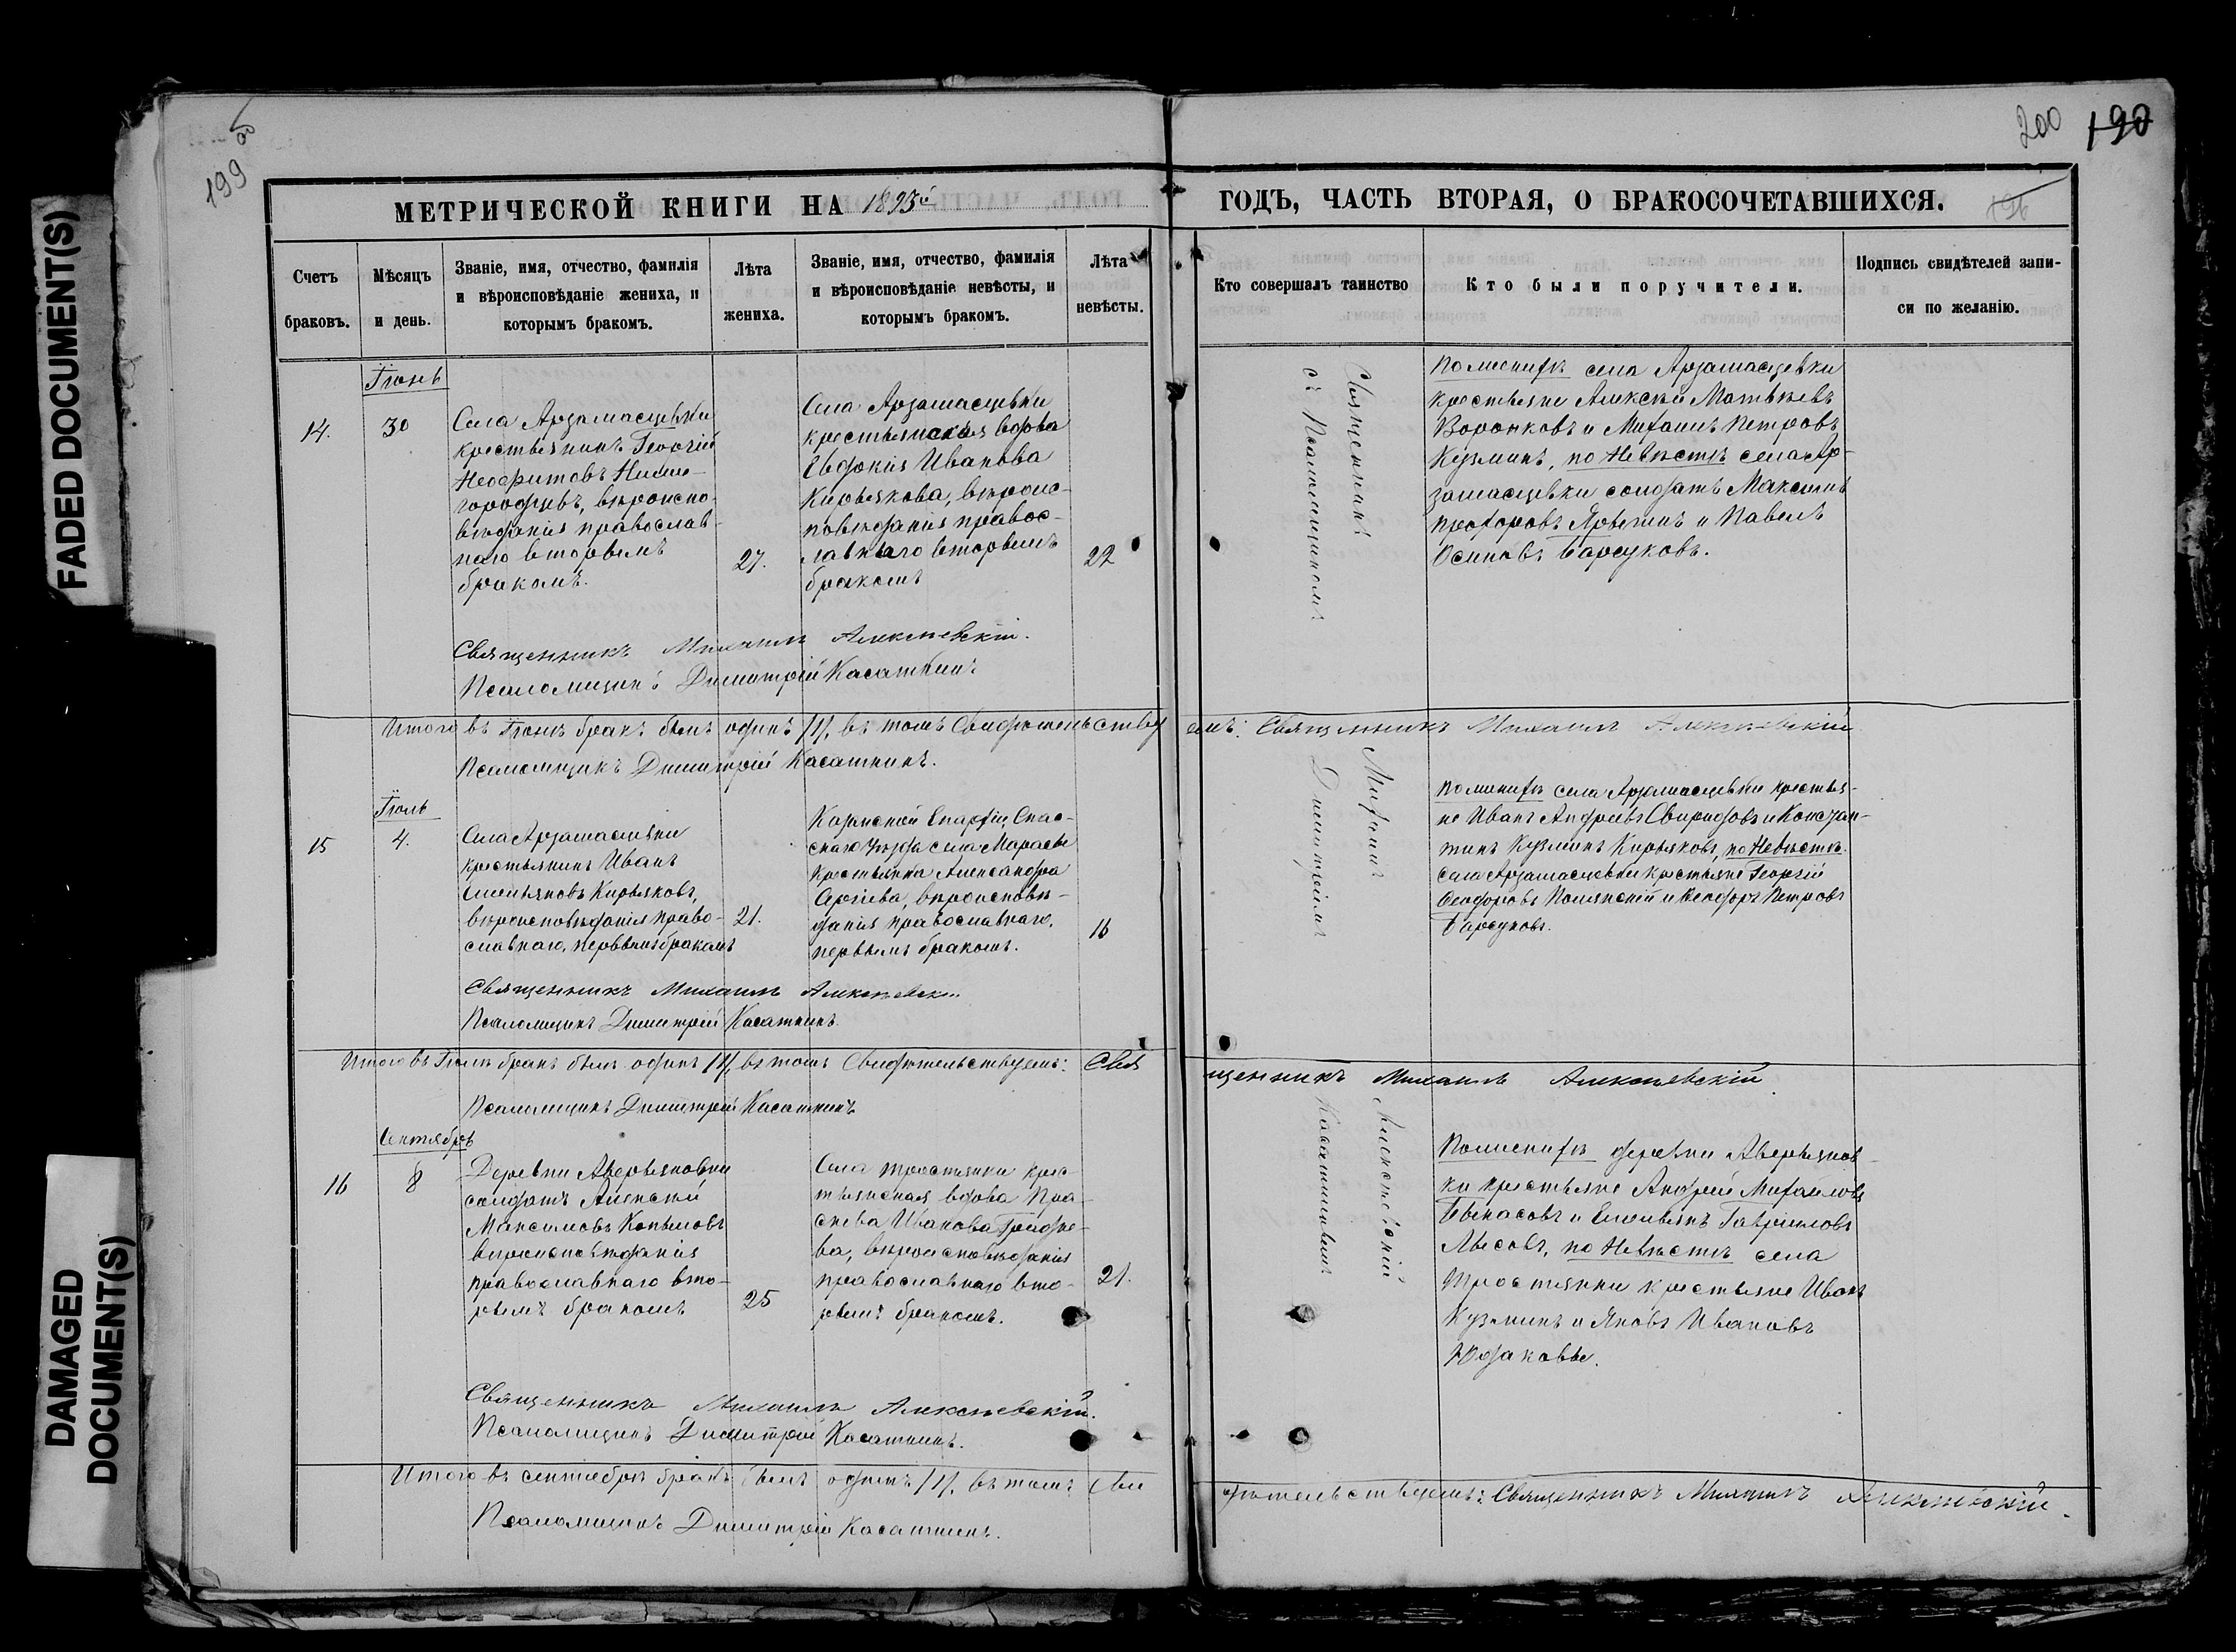 FADED DOCUMENT(S)
DAMAGED
DOCUMENT(S)
199
об
200
190
196
МЕТРИЧЕСКОЙ КНИГИ НА 1893й
ГОДЪ, ЧАСТЬ ВТОРАЯ, О БРАКОСОЧЕТАВШИХСЯ.
Счетъ
браковъ.
Мѣсяцъ
и день.
Званіе, имя, отчество, фамилія
и вѣроисповѣданіе жениха, и
которымъ бракомъ.
Лѣта
жениха.
Званіе, имя, отчество, фамилія
и вѣроисповѣданіе невѣсты, и
которымъ бракомъ.
Лѣта
невѣсты.
Кто совершалъ таинство
Кто были поручители.
Подпись свидѣтелей запи-
си по желанію.
Іюнь
14.
30
Села Арзамасцевки
крестьянинъ Георгій
Неофитовъ Ниже-
городцевъ, вѣроиспо-
вѣданія православ-
наго вторымъ
бракомъ.
27.
Села Арзамасцевки
крестьянская вдова
Евдокія Иванова
Кирьякова, вѣроис-
повѣданія правос-
лавнаго вторымъ
бракомъ
22
Священникъ Михаилъ Алексѣевскій
съ Псаломщикомъ Димитріемъ Касаткинымъ
По женихѣ села Арзамасцевки
крестьяне Алексѣй Матвѣевъ
Воронковъ и Михаилъ Петровъ
Кузминъ, по невѣстѣ села Ар-
замасцевки солдатъ Максимъ
Прохоровъ Явкинъ и Павелъ
Осиповъ Барсуковъ.
Священникъ Михаилъ Алексѣевскій.
Псаломщикъ Димитрій Касаткинъ
Итого въ Іюнѣ бракъ былъ одинъ /1/, въ томъ Свидѣтельствуемъ: Священникъ Михаилъ Алексѣевскій
Псаломщикъ Димитрій Касаткинъ.
Іюль
15
4.
Села Арзамасцевки
крестьянинъ Иванъ
Емельяновъ Кирьяковъ,
вѣроисповѣданія право-
славнаго, первымъ бракомъ
21.
Казанской Епархіи, Спас-
скаго Уѣзда села Мараевъ
крестьянка Александра
Сергіева, вѣроисповѣ-
данія православнаго,
первымъ бракомъ.
16
По женихѣ села Арзамасцевки крестья-
не Иванъ Андреевъ Свиридовъ и Констан-
тинъ Кузминъ Кирьяковъ, по невѣстѣ
села Арзамасцевки крестьяне Георгій
Ѳеодоровъ Полянскій и Ѳеодоръ Петровъ
Барсуковъ.
Священникъ Михаилъ Алексѣевскій
Псаломщикъ Димитрій Касаткинъ.
Итого въ Іюлѣ бракъ былъ одинъ /1/, въ томъ Свидѣтельствуемъ: Священникъ Михаилъ Алексѣевскій.
Псаломщикъ Димитрій Касаткинъ
Сентябрь
16
8
Деревни Аверьяновки
солдатъ Алексѣй
Максимовъ Копыловъ
вѣроисповѣданія
православнаго вто-
рымъ бракомъ
25
Села Тростянки крес-
тьянская вдова Пра-
сковья Иванова Гридне-
ва, вѣроисповѣданія
православнаго вто-
рымъ бракомъ.
21.
По женихѣ деревни Аверьянов-
ки крестьяне Андрей Михайловъ
и Емельянъ Гавриловъ
Лысовъ, по невѣстѣ села
Тростянки крестьяне Иванъ
Кузминъ и Яковъ Ивановъ
Юдаковы.
Священникъ Михаилъ Алексѣевскій.
Псаломщикъ Димитрій Касаткинъ.
Итого въ сентябрѣ бракъ былъ одинъ /1/, въ томъ Свидѣтельствуемъ: Священникъ Михаилъ Алексѣевскій.
Псаломщикъ Димитрій Касаткинъ.